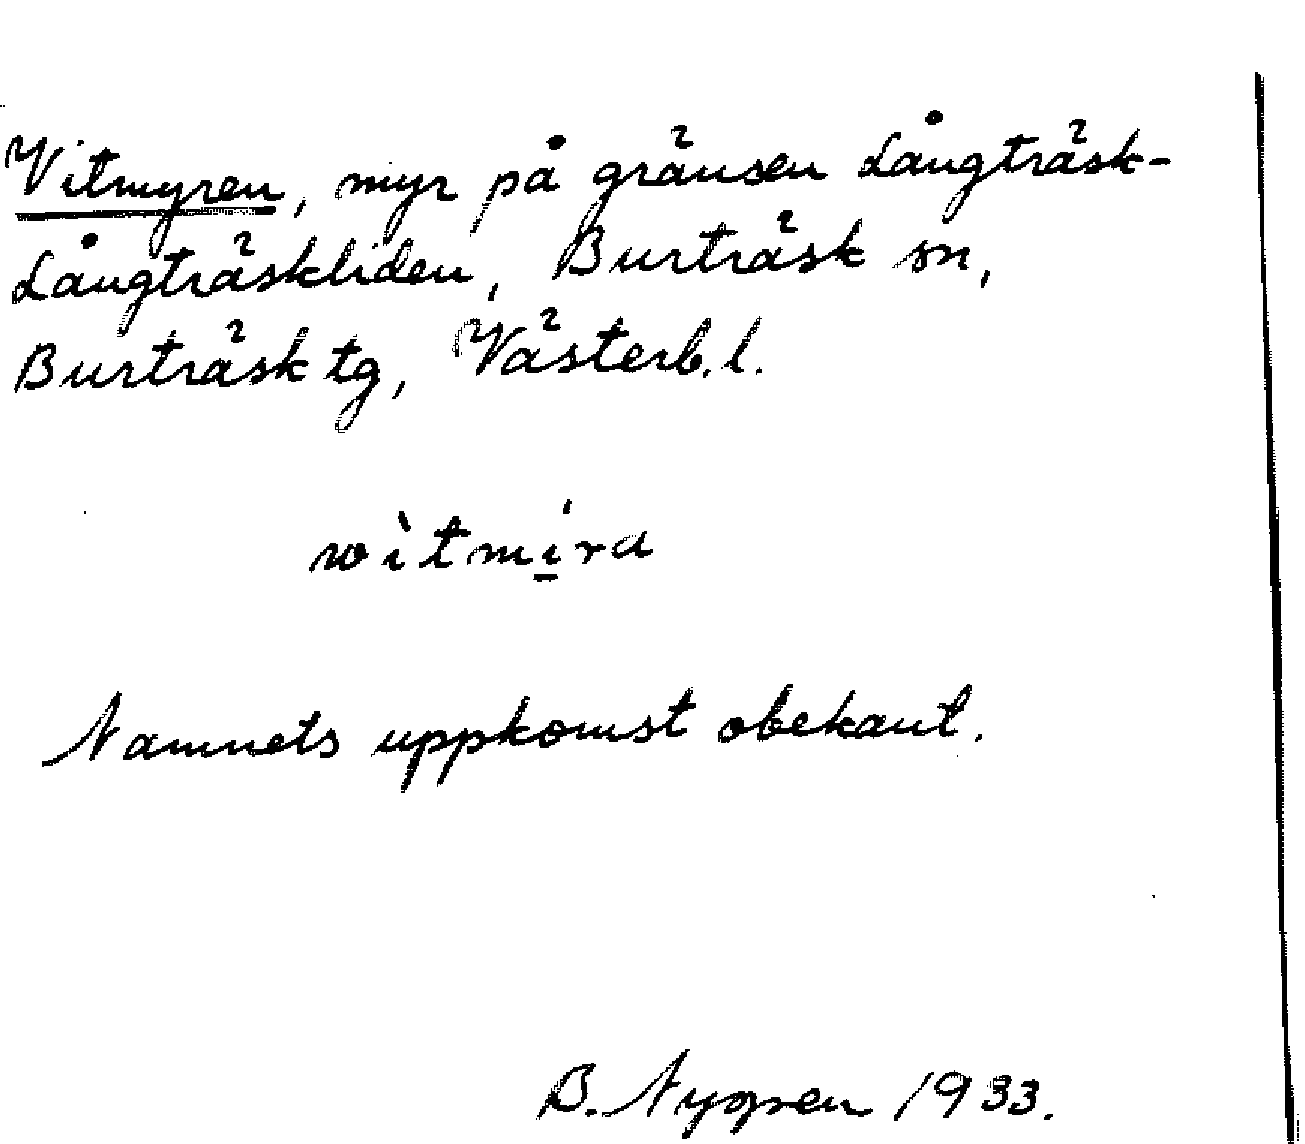 Vitmyren, myr på gränsen Långträsk-
Långträskliden, Burträsk sn,
Burträsk tg, Västerb. l.
wìtmí̱ra
Namnets uppkomst obekant.
B. Nygren 1933.